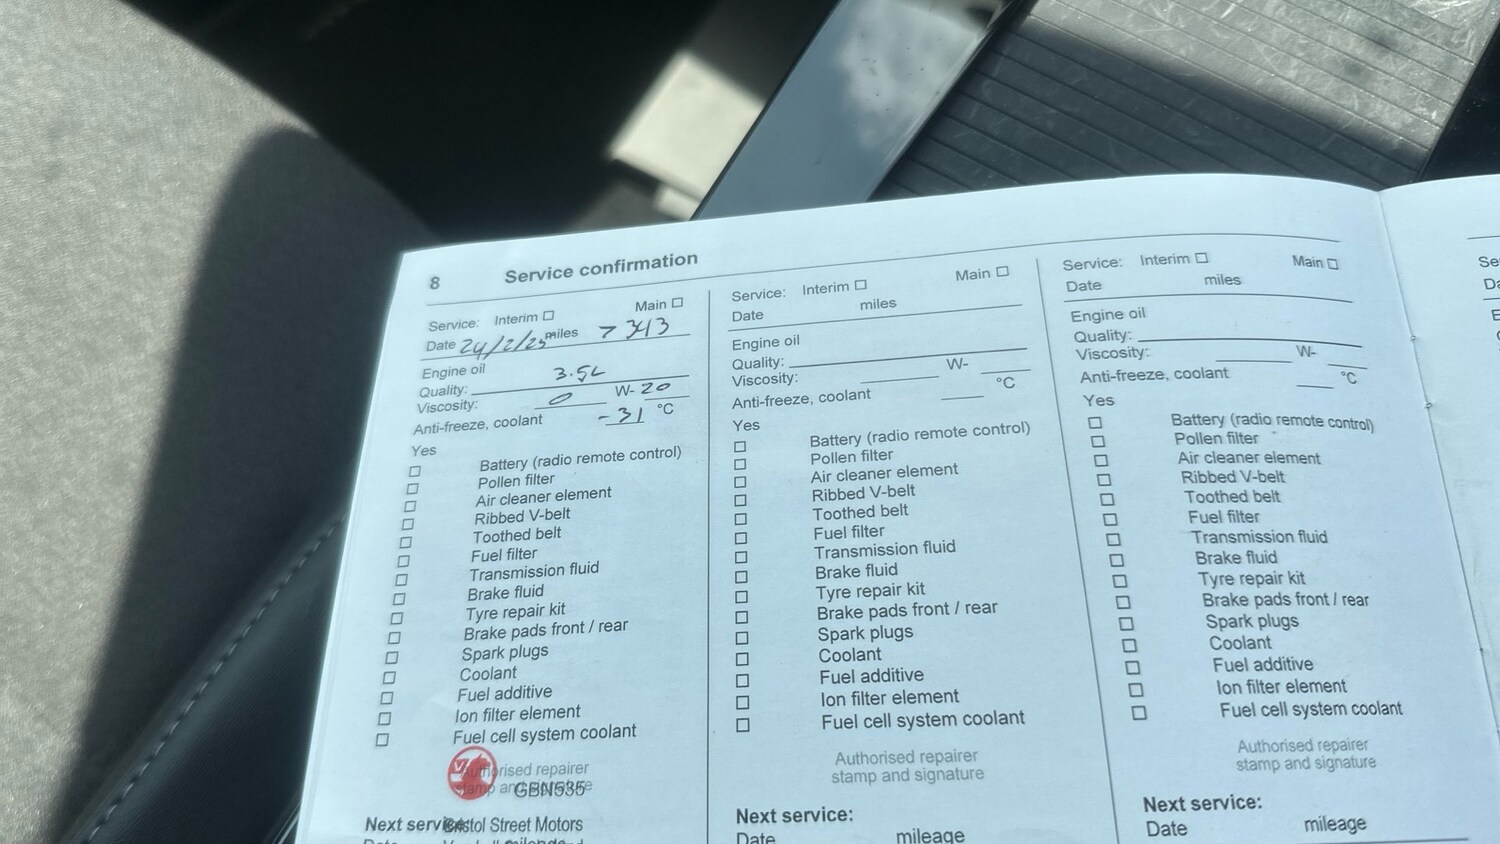 8 Service confirmation
Service: Interim ☐ Main ☐
Date 24/2/25 miles 7343
Engine oil
Quality: 3.5L
Viscosity: 0 W- 20
Anti-freeze, coolant -31 °C
Yes
☐ Battery (radio remote control)
☐ Pollen filter
☐ Air cleaner element
☐ Ribbed V-belt
☐ Toothed belt
☐ Fuel filter
☐ Transmission fluid
☐ Brake fluid
☐ Tyre repair kit
☐ Brake pads front / rear
☐ Spark plugs
☐ Coolant
☐ Fuel additive
☐ Ion filter element
☐ Fuel cell system coolant
Authorised repairer
stamp and
GBN535
Next service:
Bristol Street Motors
Service: Interim ☐ Main ☐
Date miles
Engine oil
Quality:
Viscosity: W-
Anti-freeze, coolant °C
Yes
☐ Battery (radio remote control)
☐ Pollen filter
☐ Air cleaner element
☐ Ribbed V-belt
☐ Toothed belt
☐ Fuel filter
☐ Transmission fluid
☐ Brake fluid
☐ Tyre repair kit
☐ Brake pads front / rear
☐ Spark plugs
☐ Coolant
☐ Fuel additive
☐ Ion filter element
☐ Fuel cell system coolant
Authorised repairer
stamp and signature
Next service:
Date mileage
Service: Interim ☐ Main ☐
Date miles
Engine oil
Quality:
Viscosity: W-
Anti-freeze, coolant °C
Yes
☐ Battery (radio remote control)
☐ Pollen filter
☐ Air cleaner element
☐ Ribbed V-belt
☐ Toothed belt
☐ Fuel filter
☐ Transmission fluid
☐ Brake fluid
☐ Tyre repair kit
☐ Brake pads front / rear
☐ Spark plugs
☐ Coolant
☐ Fuel additive
☐ Ion filter element
☐ Fuel cell system coolant
Authorised repairer
stamp and signature
Next service:
Date mileage